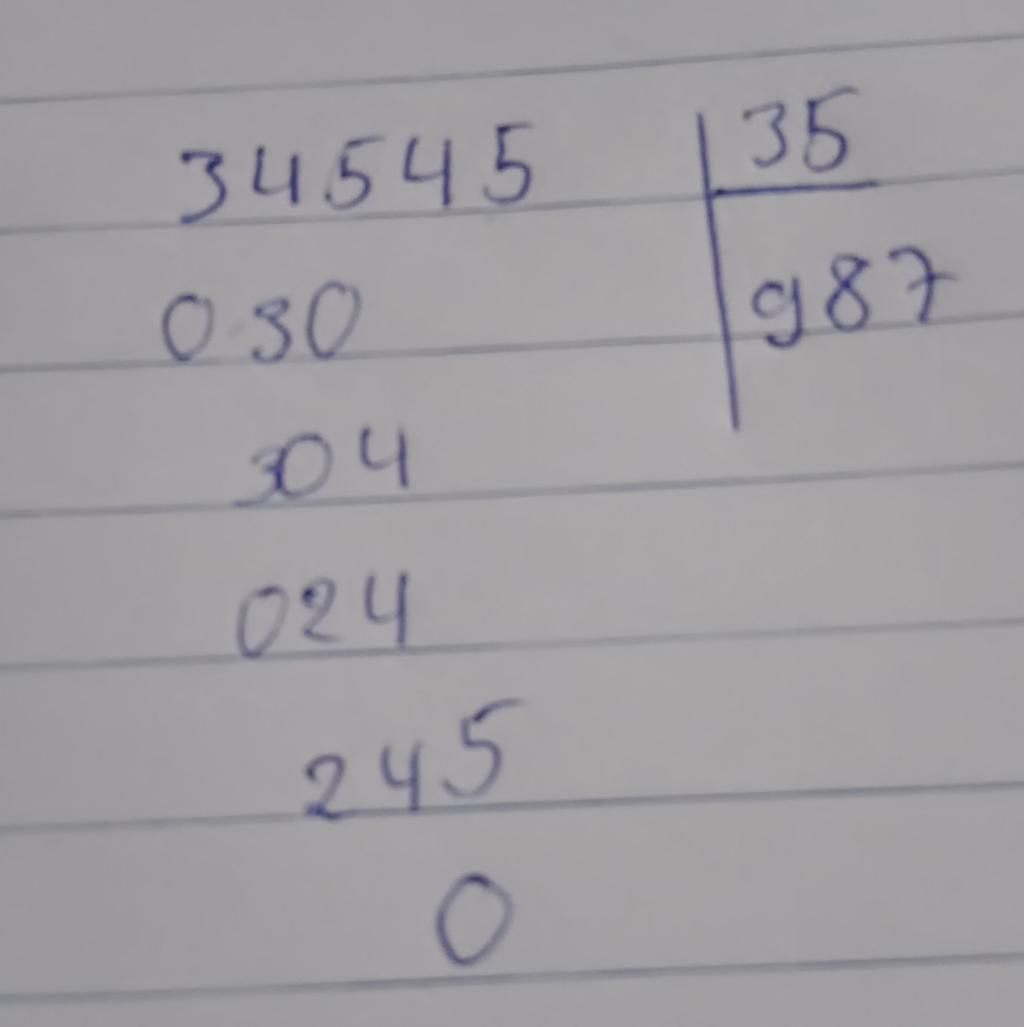 34545 35
030 987
304
024
245
0